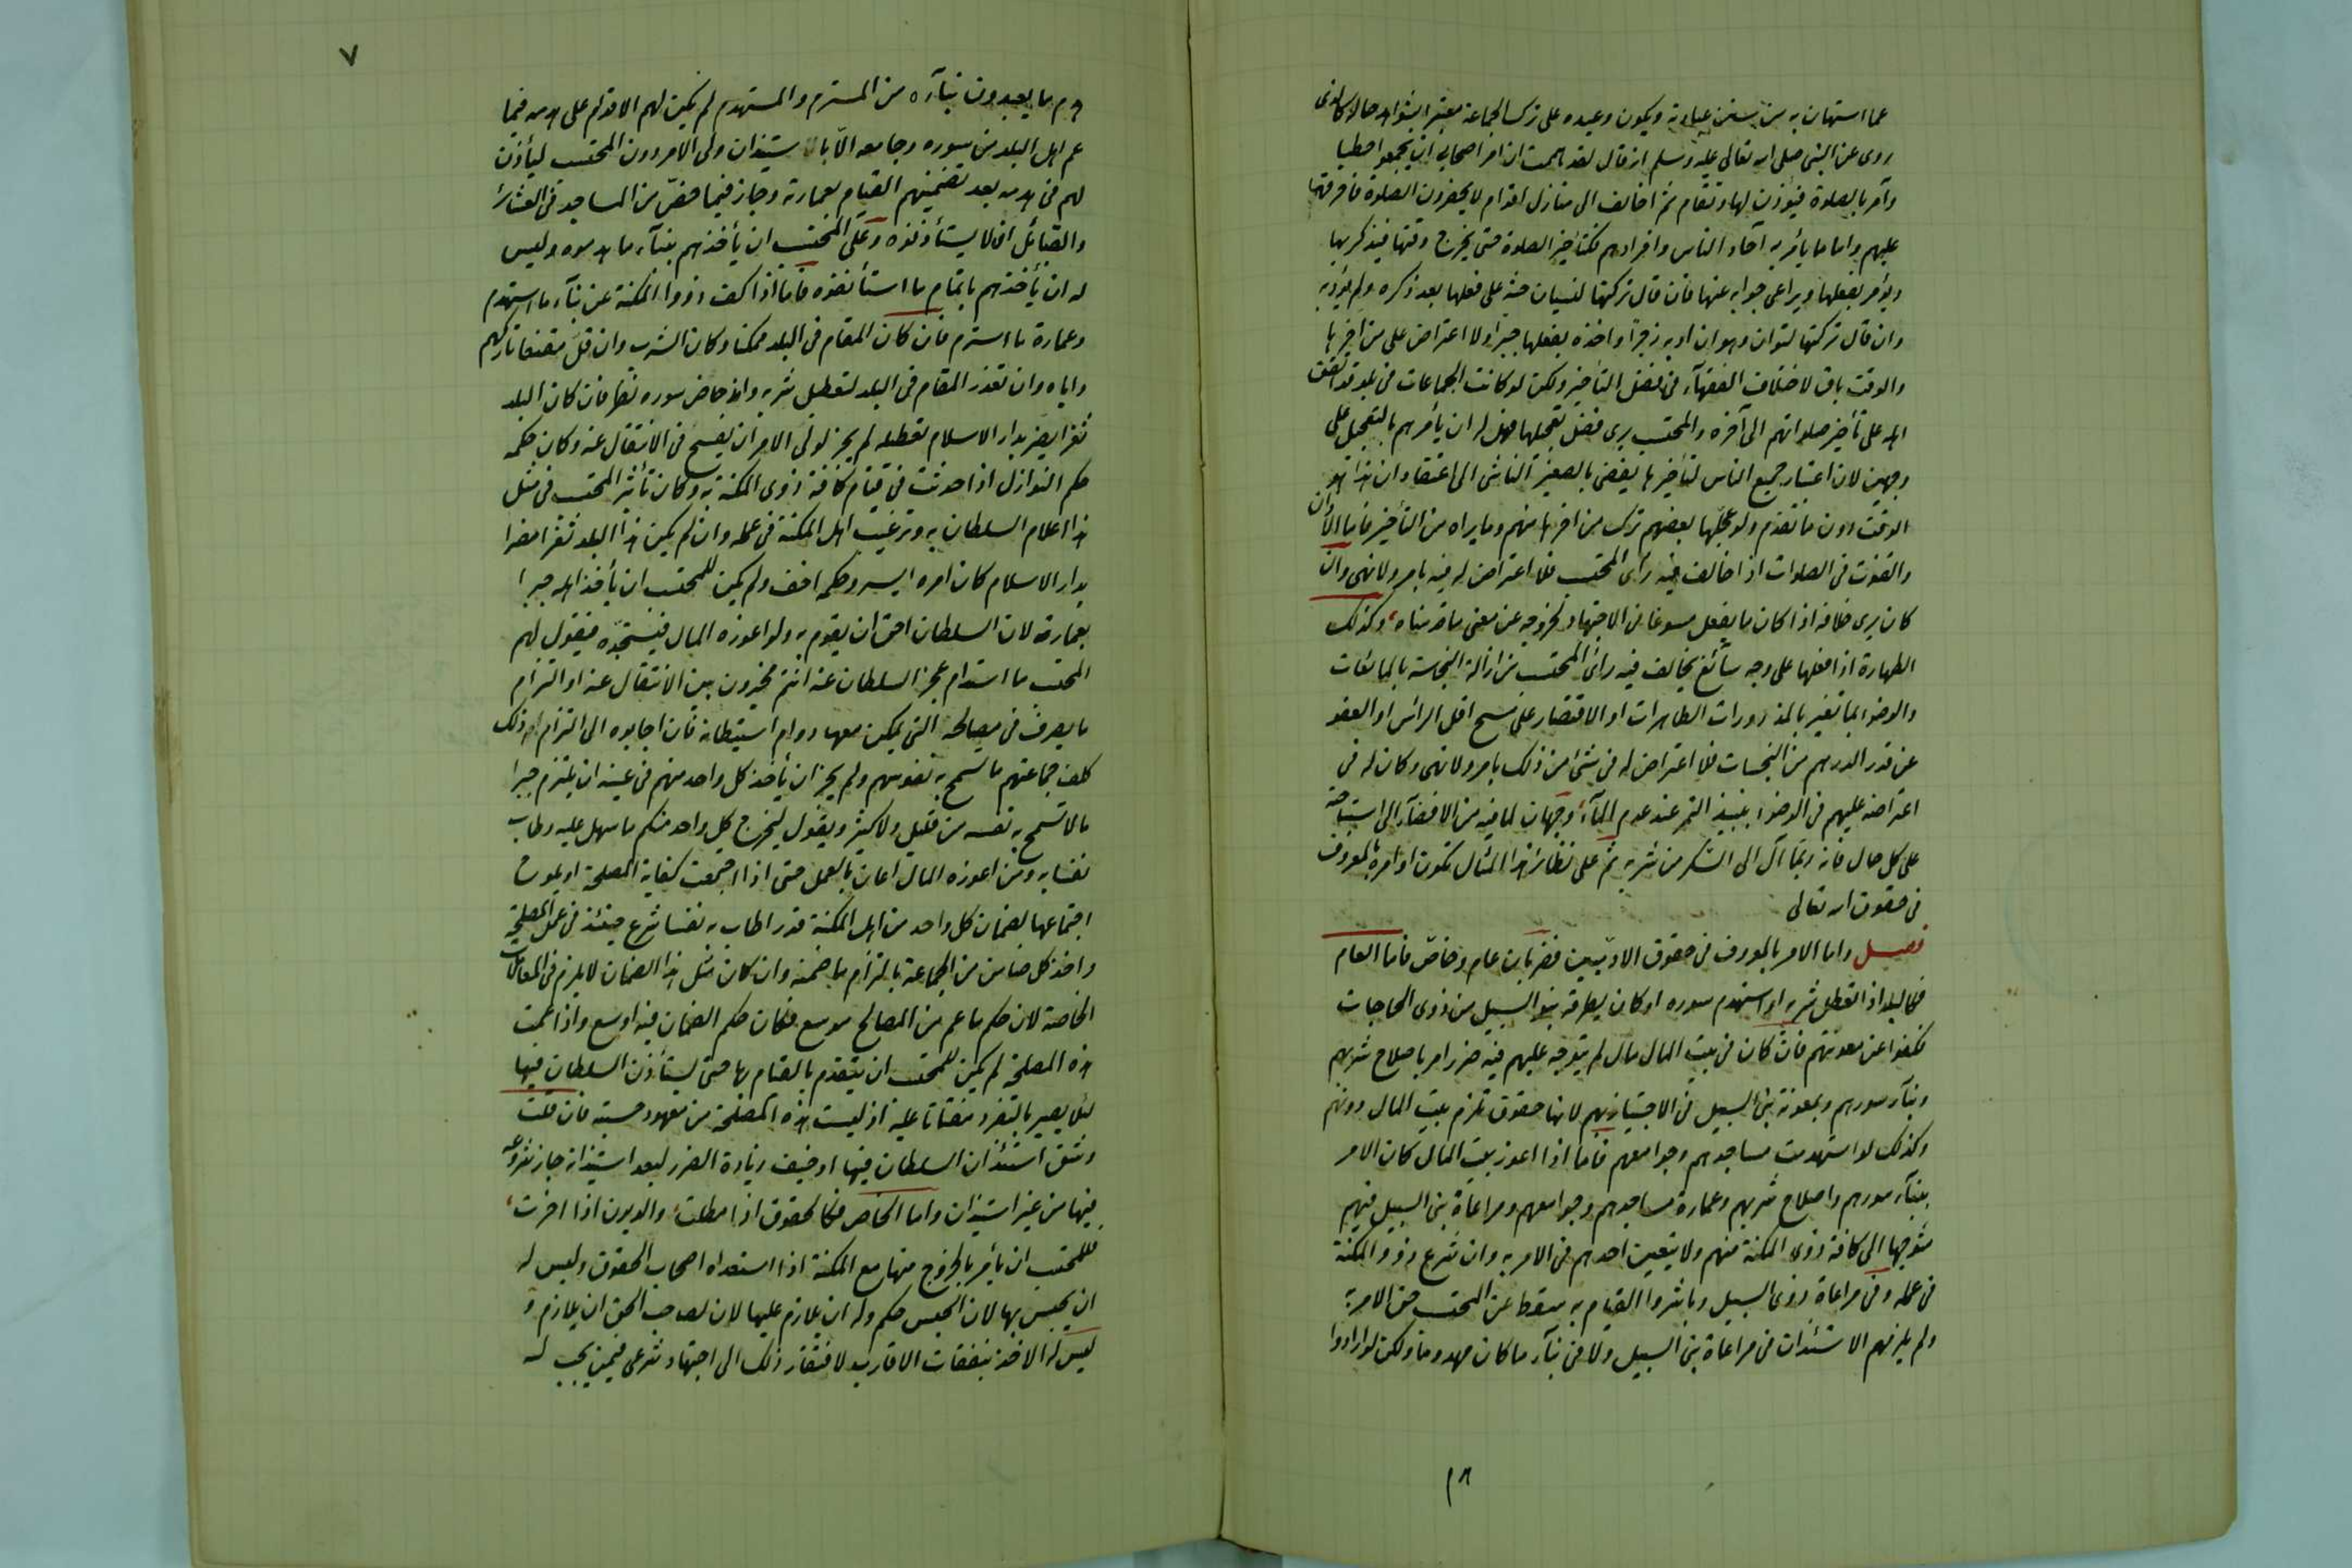 عما استهان به من سنن عباداته ويكون وعيده على ترك الجماعة معتبرا بشواهد حاله كالذى
روى عن النبى صلى الله تعالى عليه وسلم انه قال لقد هممت ان آمر اصحابى ان يجمعوا حطبا
وآمر بالصلوة فيؤذن لها وتقام ثم اخالف الى منازل اقوام لا يحضرون الصلوة فاحرقها
عليهم واما ما يأمر به آحاد الناس وافرادهم فكتأخير الصلوة حتى يخرج وقتها فيذكر بها
ويؤمر بفعلها ويراعى جوابه عنها فان قال تركتها لنسيان حثه على فعلها بعد ذكره ولم يؤدبه
وان قال تركتها لتوان وهوان ادبه زجرا واخذه بفعلها جبرا ولا اعتراض على من اخرها
والوقت باق لاختلاف الفقهآء فى فضل التأخير ولكن لو كانت الجماعات فى بلد قد اتفق
اهله على تأخير صلواتهم الى آخره والمحتسب يرى فضل تعجيلها فهل له ان يأمرهم بالتعجيل على
وجهين لان اعتبار جميع الناس لتأخيرها يفضى بالصغير الناشى الى اعتقاد ان هذا هو
الوقت دون ما تقدم ولو عجلها بعضهم ترك من اخرها منهم وما يراه من التأخير فاما الأذان
والقنوت فى الصلوات اذا خالف فيه رأى المحتسب فلا اعتراض له فيه بامر ولا نهى وان
كان يرى خلافه اذا كان ما يفعل مسوغا فى الاجتهاد لخروجه عن معنى ما قدمناه وكذلك
الطهارة اذا فعلها على وجه سآئغ يخالف فيه رأى المحتسب من ازالة النجاسة بالمايعات
والوضوء بما تغير بالمذرورات الطاهرات او الاقتصار على مسح اقل الرأس او العفو
عن قدر الدرهم من النجاسات فلا اعتراض له فى شئ من ذلك بامر ولا نهى وكان له فى
اعتراضه عليهم فى الوضوء بنبيذ التمر عند عدم المآء وجهان لما فيه من الافضآء الى استباحته
على كل حال فانه ربما آل الى السكر من شربه ثم على نظائر هذا المثال تكون اوامره بالمعروف
فى حقوق الله تعالى
فصل واما الامر بالمعروف فى حقوق الادميين فضربان عام وخاص فاما العام
فكالبلد اذا تعطل شربه او استهدم سوره او كان يطرقه بنو السبيل من ذوى الحاجات
فكفوا عن معونتهم فان كان فى بيت المال مال لم يتوجه عليهم فيه ضرر امر باصلاح شربهم
وبنآء سورهم وبمعونة بنى السبيل فى الاجتياز بهم لانها حقوق تلزم بيت المال دونهم
وكذلك لو استهدمت مساجدهم وجوامعهم فاما اذا اعوز بيت المال كان الامر
ببنآء سورهم واصلاح شربهم وعمارة مساجدهم وجوامعهم ومراعاة بنى السبيل فيهم
متوجها الى كافة ذوى المكنة منهم ولا يتعين احدهم فى الامر به وان شرع ذوو المكنة
فى عمله وفى مراعاة ذوى السبيل وباشروا القيام به سقط عن المحتسب حق الامر به
ولم يلزمهم الاستئذان فى مراعاة بنى السبيل ولا فى بنآء ما كان مهدوما ولكن لو ارادوا
١٨
٧
هدم ما يعيدون بنآءه من المسترم والمستهدم لم يكن لهم الاقدام على هدمه فيما
عم اهل البلد من سوره وجامعه الا باستيذان ولى الامر دون المحتسب ليأذن
لهم فى هدمه بعد تضمينهم القيام بعمارته وجاز فيما خص من المساجد فى العشائر
والقبائل ان لا يستأذنوه وعلى المحتسب ان يأخذهم ببنآء ما هدموه وليس
له ان يأخذهم باتمام ما استأنفوه فاما اذا كف ذووا المكنة عن بنآء ما استهدم
وعمارة ما استرم فان كان المقام فى البلد ممكنا وكان الشرب وان قل مقنعا تاركهم
واياه وان تعذر المقام فى البلد لتعطيل شربه واندحاض سوره نظر فان كان البلد
ثغرا يضر بدار الاسلام تعطيله لم يجز لولى الامر ان يفسح فى الانتقال عنه وكان حكمه
حكم النوازل اذا حدثت فى قيام كافة ذوى المكنة به وكان تأثير المحتسب فى مثل
هذا اعلام السلطان به وترغيب اهل المكنة فى عمله وان لم يكن هذا البلد ثغرا مضرا
بدار الاسلام كان امره ايسر وحكمه اخف ولم يكن للمحتسب ان يأخذ اهله جبرا
بعمارته لان السلطان احق ان يقوم به ولو اعوزه المال فيستجده فيقول لهم
المحتسب ما استدام عجز السلطان عنه انتم مخيرون بين الانتقال عنه او التزام
ما يصرف فى مصالحه التى يمكن معها دوام استيطانه فان اجابوه الى التزام ذلك
كلف جماعتهم ما تسمح به نفوسهم ولم يجز ان يأخذ كل واحد منهم فى عينه ان يلتزم جبرا
ما لا تسمح به نفسه من قليل ولا كثير ويقول ليخرج كل واحد منكم ما سهل عليه وطاب
نفسا به ومن اعوزه المال اعان بالعمل حتى اذا اجتمعت كفاية المصلحة او يلوح
اجتماعها بضمان كل واحد من اهل المكنة قدرا طاب به نفسا شرع حينئذ فى عمل المصلحة
واخذ كل ضامن من الجماعة بالتزام ما ضمنه وان كان مثل هذا الضمان لا يلزم فى المعاملات
الخاصة لان حكم ما عم من المصالح موسع فكان حكم الضمان فيه اوسع واذا عمت
هذه المصلحة لم يكن للمحتسب ان يتقدم بالقيام بها حتى يستأذن السلطان فيها
لئلا يصير بالتفرد مفتاتا عليه اذ ليست هذه المصلحة من معهود حسبته فان قلت
وشق استئذان السلطان فيها او خيف زيادة الضرر لبعد استيذانه جاز شروعه
فيها من غير استيذان واما الخاص فكالحقوق اذا مطلت والديون اذا اخرت
فللمحتسب ان يأمر بالخروج منها مع المكنة اذا استعداه اصحاب الحقوق وليس له
ان يحبس بها لان الحبس حكم وله ان يلازم عليها لان لصاحب الحق ان يلازم و
ليس له الاخذ بنفقات الاقارب لافتقار ذلك الى اجتهاد شرعى فيمن يجب له